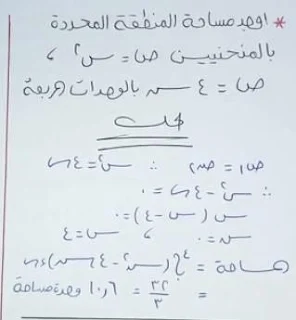 * اوجد مساحة المنطقة المحددة
بالمنحنيين ص = س² ،
ص = ٤س بالوحدات المربعة
الحل
ص١ = ص٢ ∴ س² = ٤س
∴ س² - ٤س = ٠
س (س - ٤) = ٠
س = ٠ ، س = ٤
مساحة = ∫٤ (س² - ٤س) ءس
= ٣٢/٣ = ١٠٫٦ وحدة مساحة